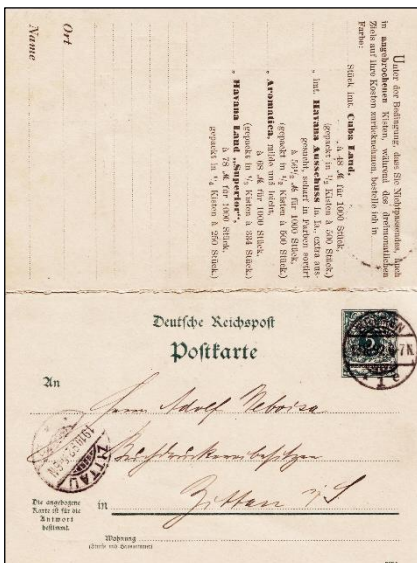 Unter der Bedingung, dass Sie Nichtpassendes, auch
in angebrochenen Kisten, während des dreimonatlichen
Ziels auf ihre Kosten zurücknehmen, bestelle ich in
Farbe:
Stück imt. Cuba Land,
à 48 M für 1000 Stück,
(gepackt in 1/2 Kisten à 500 Stück.)
" imt. Havana Ausschuss in Ia., extra aus-
gesucht, scharf in Farben sortirt
für 1000 Stück,
(gepackt in 1/2 Kisten à 500 Stück.)
" Aromatica, milde und leicht,
à 68 M für 1000 Stück,
(gepackt in 1/3 Kisten à 334 Stück.)
" Havana Land „Superior",
à 78 M für 1000 Stück,
gepackt in Kisten à 250 Stück.)
Ort
Name
Deutsche Reichspost
Postkarte
An
Herrn Adolf
Buchdruckereibesitzer
in Zittau i/S
ZITTAU
Die angebogene
Karte ist für die
Antwort
bestimmt.
Wohnung
(Straße und Hausnummer)